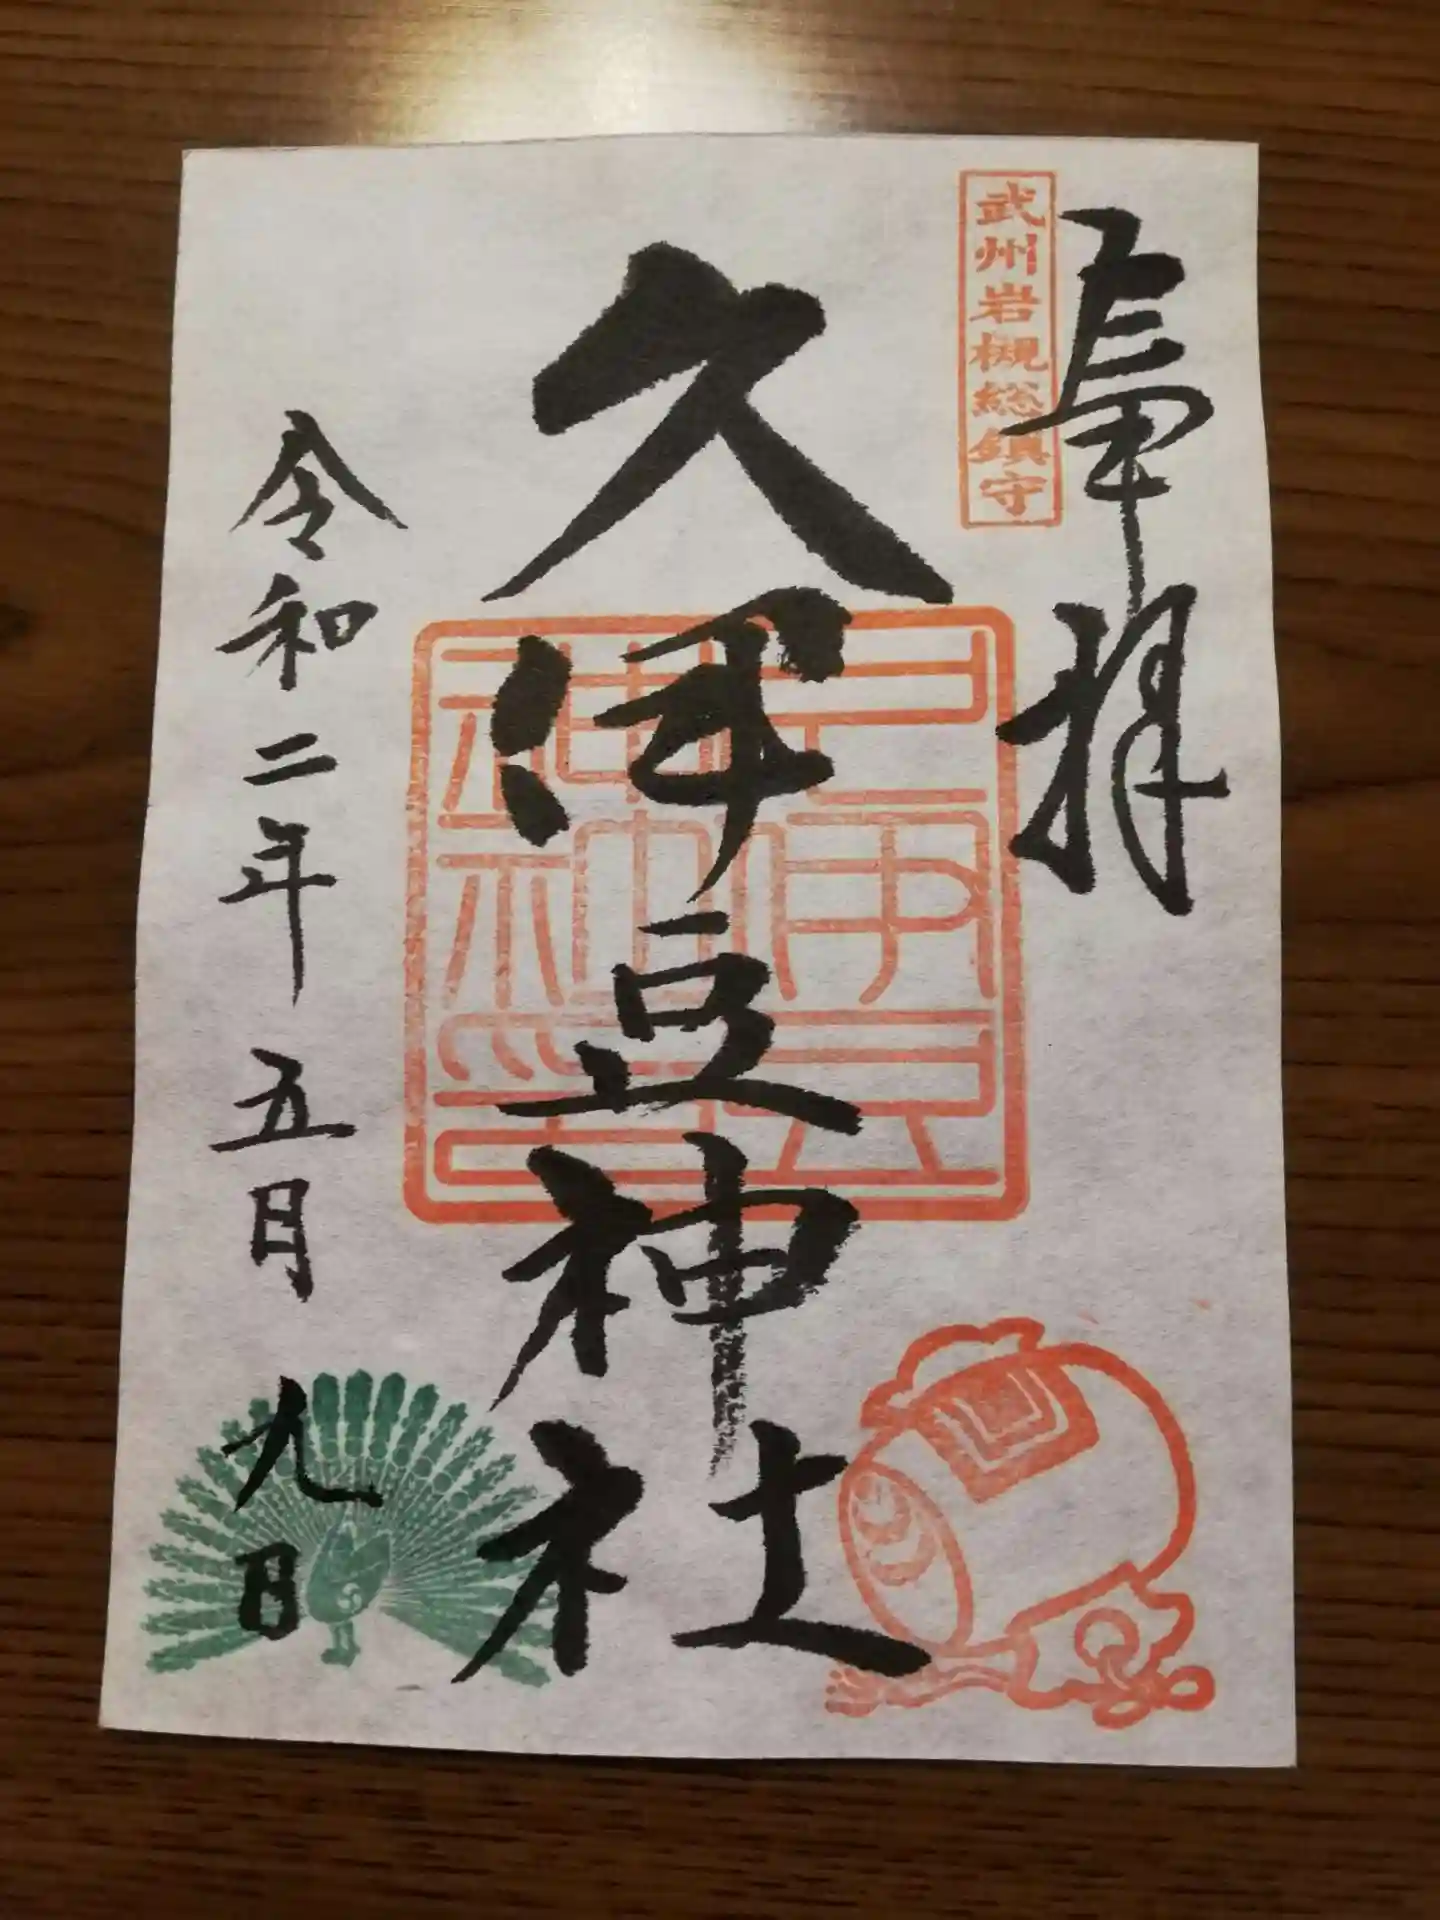 奉拝
武州岩槻総鎮守
久伊豆神社
久伊豆
神社印
令和二年五月九日